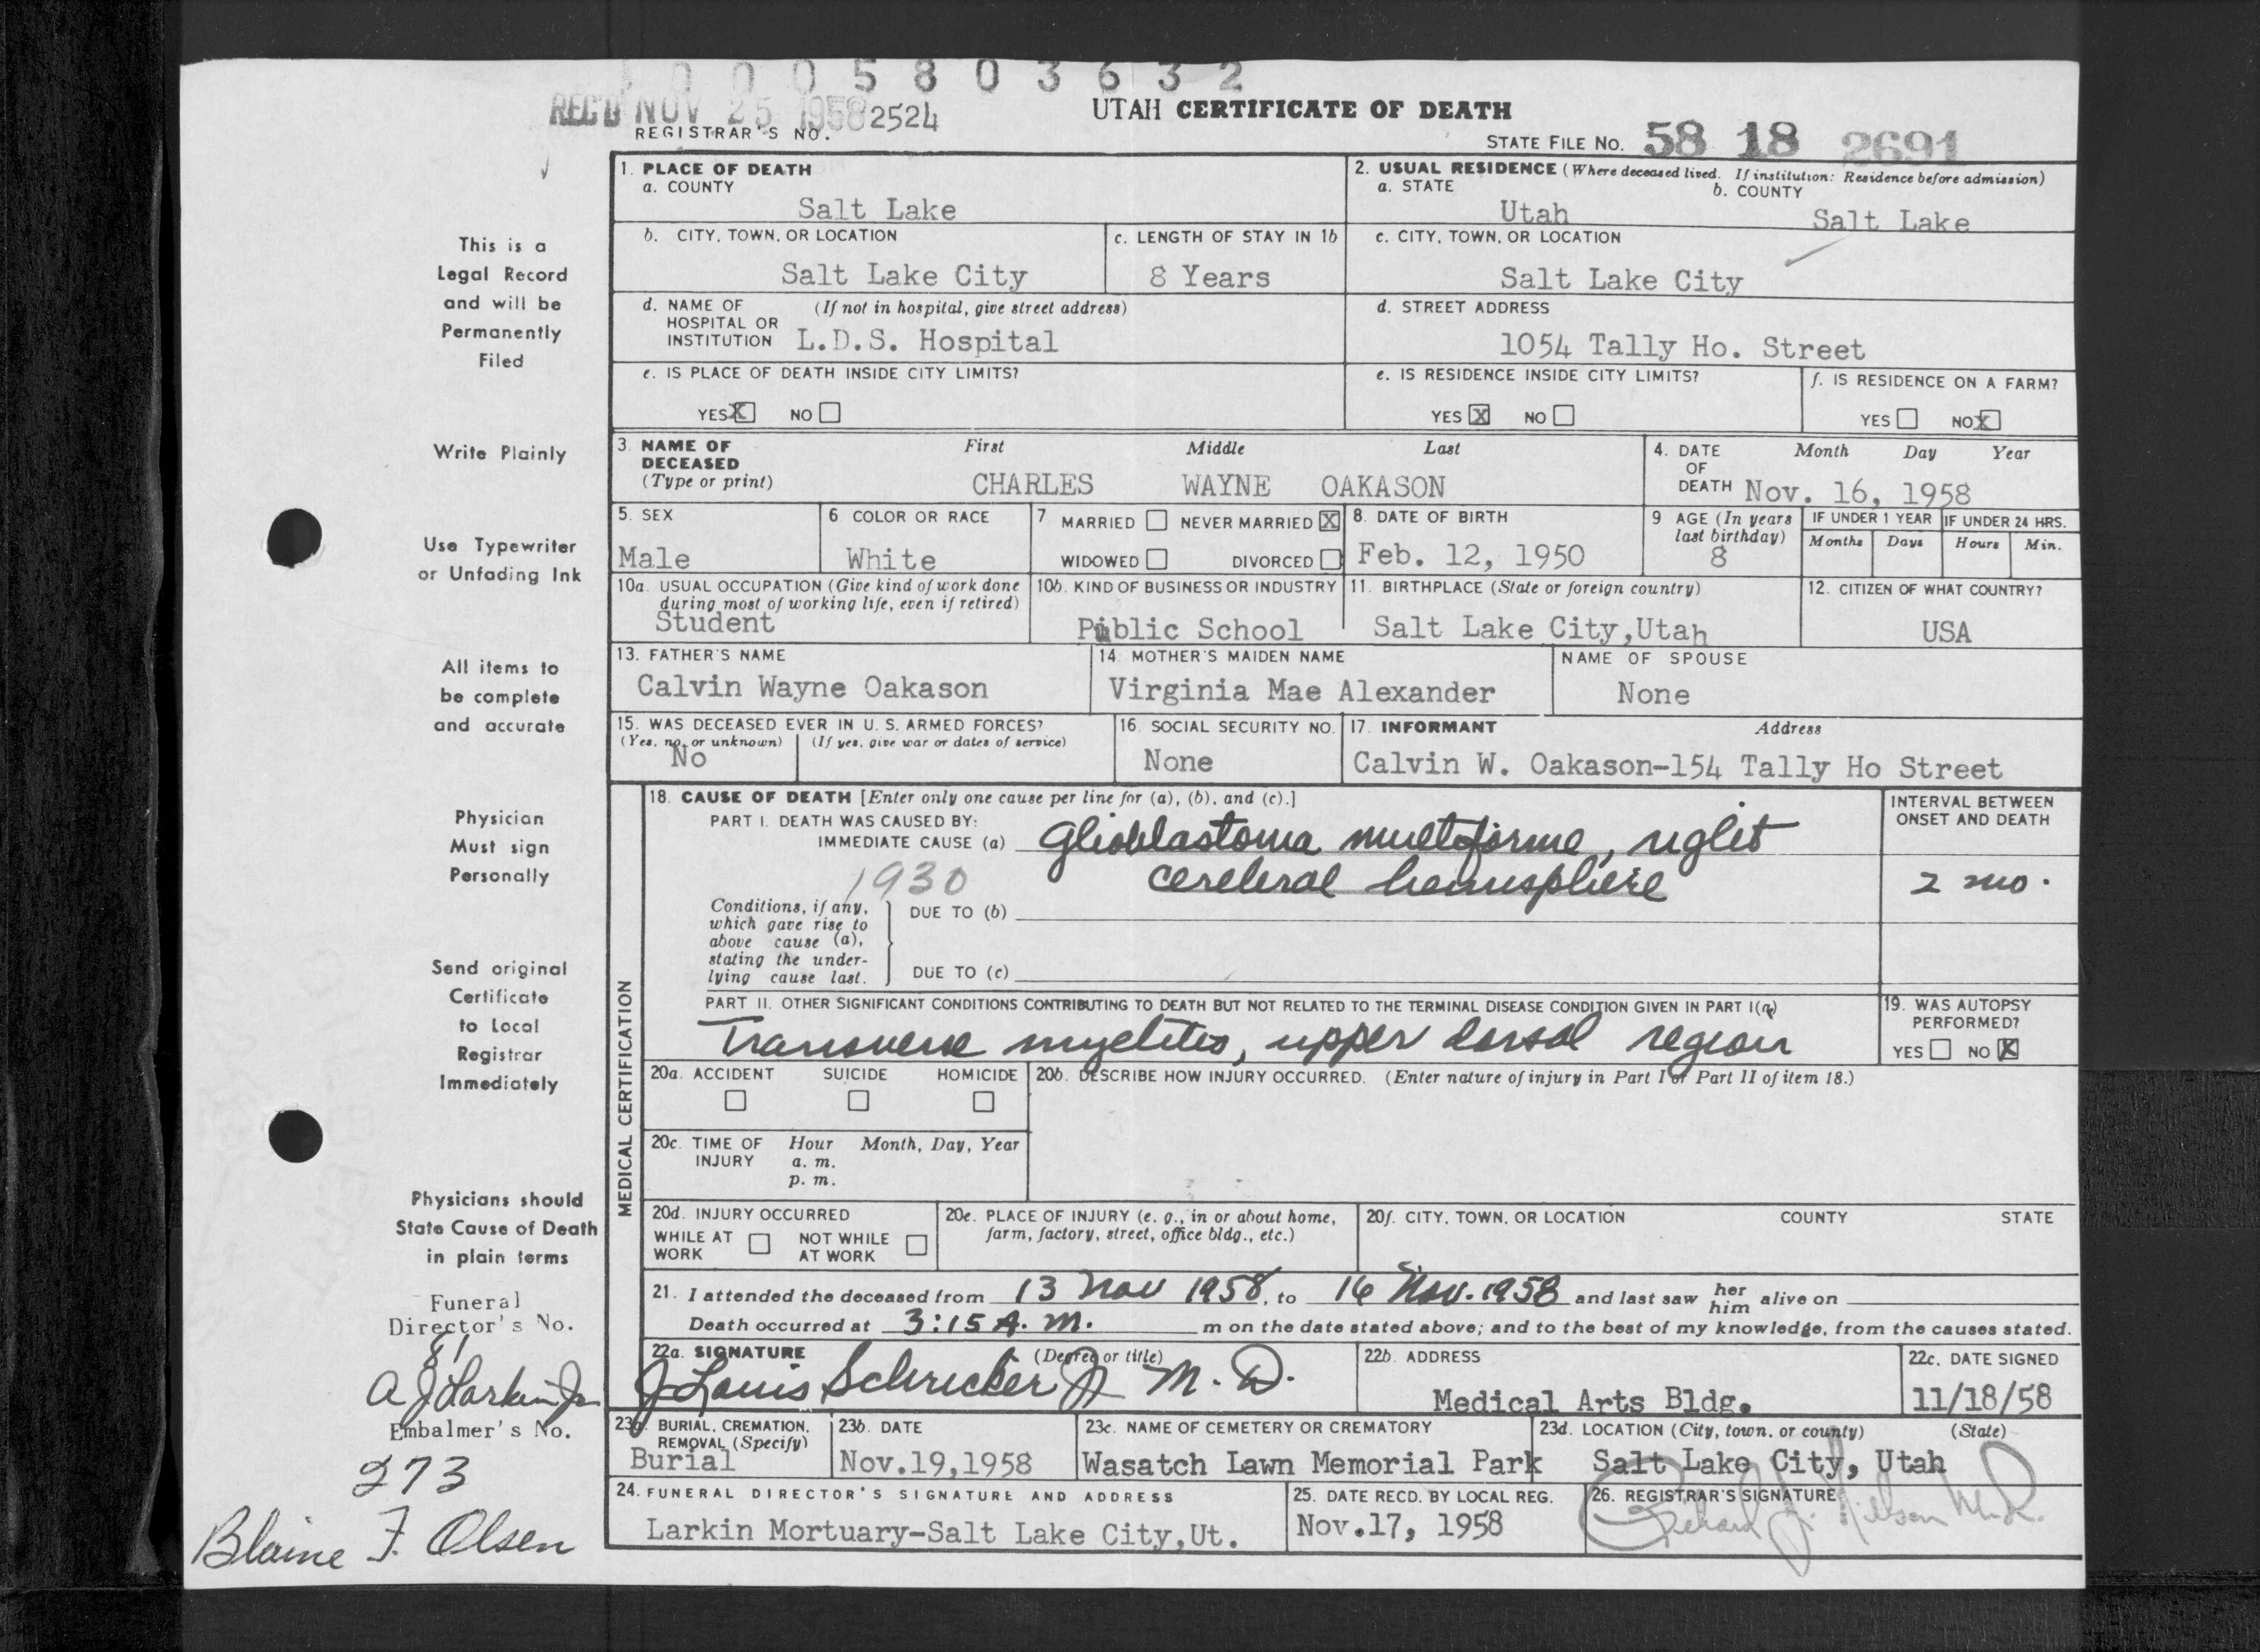 0 0 0 5 8 0 3 6 3 2
REC'D NOV 25 1958 2524
REGISTRAR'S NO.
UTAH CERTIFICATE OF DEATH
STATE FILE NO. 58 18 2691
This is a
Legal Record
and will be
Permanently
Filed
Write Plainly
Use Typewriter
or Unfading Ink
All items to
be complete
and accurate
Physician
Must sign
Personally
Send original
Certificate
to Local
Registrar
Immediately
Physicians should
State Cause of Death
in plain terms
Funeral
Director's No.
81
A J Larkin Jr
Embalmer's No.
273
Blaine F. Olsen
1. PLACE OF DEATH
a. COUNTY
Salt Lake
2. USUAL RESIDENCE (Where deceased lived. If institution: Residence before admission)
a. STATE b. COUNTY
Utah Salt Lake
b. CITY, TOWN, OR LOCATION
Salt Lake City
c. LENGTH OF STAY IN 1b
8 Years
c. CITY, TOWN, OR LOCATION
Salt Lake City
d. NAME OF (If not in hospital, give street address)
HOSPITAL OR
INSTITUTION L.D.S. Hospital
d. STREET ADDRESS
1054 Tally Ho. Street
e. IS PLACE OF DEATH INSIDE CITY LIMITS?
YES X NO
e. IS RESIDENCE INSIDE CITY LIMITS?
YES X NO
f. IS RESIDENCE ON A FARM?
YES NO X
3. NAME OF First Middle Last
DECEASED
(Type or print) CHARLES WAYNE OAKASON
4. DATE Month Day Year
OF
DEATH Nov. 16, 1958
5. SEX
Male
6 COLOR OR RACE
White
7 MARRIED NEVER MARRIED X
WIDOWED DIVORCED
8. DATE OF BIRTH
Feb. 12, 1950
9 AGE (In years
last birthday)
8
IF UNDER 1 YEAR IF UNDER 24 HRS.
Months Days Hours Min.
10a. USUAL OCCUPATION (Give kind of work done
during most of working life, even if retired)
Student
10b. KIND OF BUSINESS OR INDUSTRY
Public School
11. BIRTHPLACE (State or foreign country)
Salt Lake City,Utah
12. CITIZEN OF WHAT COUNTRY?
USA
13. FATHER'S NAME
Calvin Wayne Oakason
14. MOTHER'S MAIDEN NAME
Virginia Mae Alexander
NAME OF SPOUSE
None
15. WAS DECEASED EVER IN U. S. ARMED FORCES?
(Yes, no, or unknown) (If yes, give war or dates of service)
No
16. SOCIAL SECURITY NO.
None
17. INFORMANT Address
Calvin W. Oakason-154 Tally Ho Street
MEDICAL CERTIFICATION
18. CAUSE OF DEATH [Enter only one cause per line for (a), (b), and (c).]
PART I. DEATH WAS CAUSED BY:
IMMEDIATE CAUSE (a) Glioblastoma multiforme, right
1930 cerebral hemisphere
INTERVAL BETWEEN
ONSET AND DEATH
2 mo.
Conditions, if any,
which gave rise to
above cause (a),
stating the under-
lying cause last.
DUE TO (b)
DUE TO (c)
PART II. OTHER SIGNIFICANT CONDITIONS CONTRIBUTING TO DEATH BUT NOT RELATED TO THE TERMINAL DISEASE CONDITION GIVEN IN PART I(a)
Transverse myelitis, upper dorsal region
19. WAS AUTOPSY
PERFORMED?
YES NO X
20a. ACCIDENT SUICIDE HOMICIDE
20b. DESCRIBE HOW INJURY OCCURRED. (Enter nature of injury in Part I or Part II of item 18.)
20c. TIME OF Hour Month, Day, Year
INJURY a. m.
p. m.
20d. INJURY OCCURRED
WHILE AT NOT WHILE
WORK AT WORK
20e. PLACE OF INJURY (e. g., in or about home,
farm, factory, street, office bldg., etc.)
20f. CITY, TOWN, OR LOCATION COUNTY STATE
21. I attended the deceased from 13 Nov 1958, to 16 Nov. 1958 and last saw her him alive on
Death occurred at 3:15 A. M. m on the date stated above; and to the best of my knowledge, from the causes stated.
22a. SIGNATURE (Degree or title)
J Louis Schricker Jr M. D.
22b. ADDRESS
Medical Arts Bldg.
22c. DATE SIGNED
11/18/58
23a. BURIAL, CREMATION,
REMOVAL (Specify)
Burial
23b. DATE
Nov.19,1958
23c. NAME OF CEMETERY OR CREMATORY
Wasatch Lawn Memorial Park
23d. LOCATION (City, town, or county) (State)
Salt Lake City, Utah
24. FUNERAL DIRECTOR'S SIGNATURE AND ADDRESS
Larkin Mortuary-Salt Lake City,Ut.
25. DATE RECD. BY LOCAL REG.
Nov.17, 1958
26. REGISTRAR'S SIGNATURE
Richard J. Nilsen M.D.